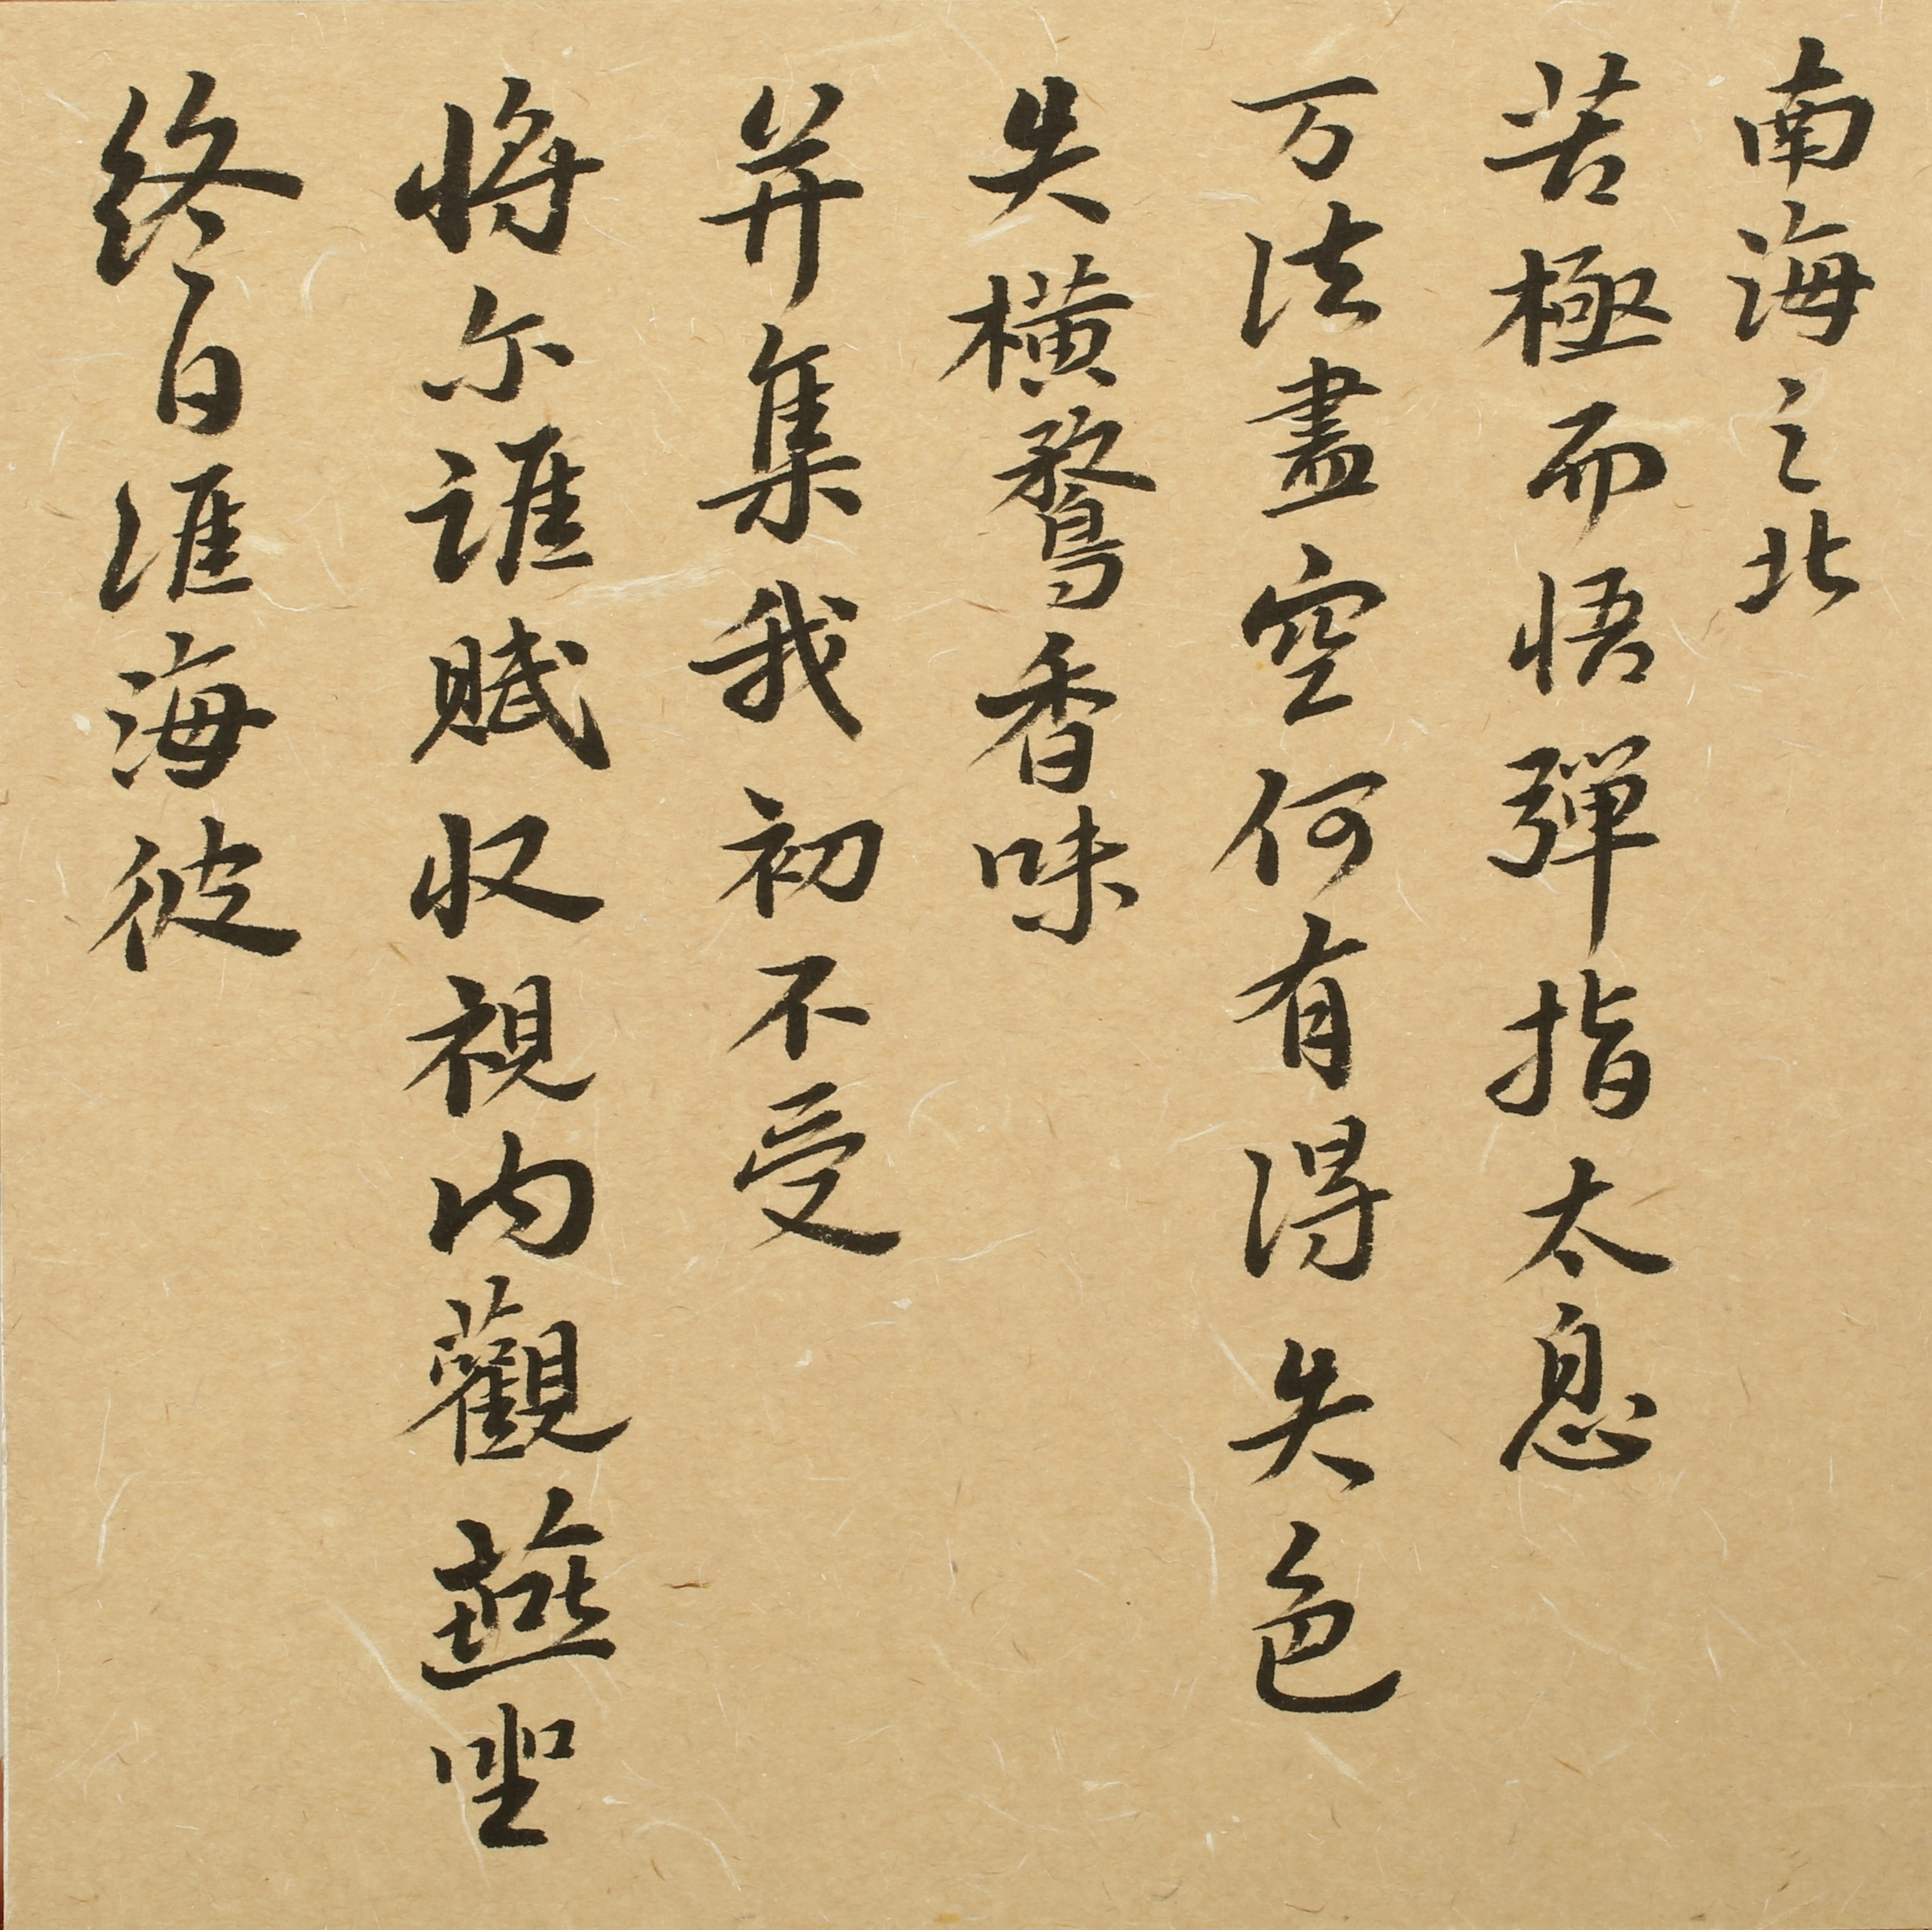 南海之北
苦極而悟彈指太息
万法盡空何有得失色
失橫鶩香味
并集我初不受
将尔誰賊収視内觀燕坐
終日准海彼